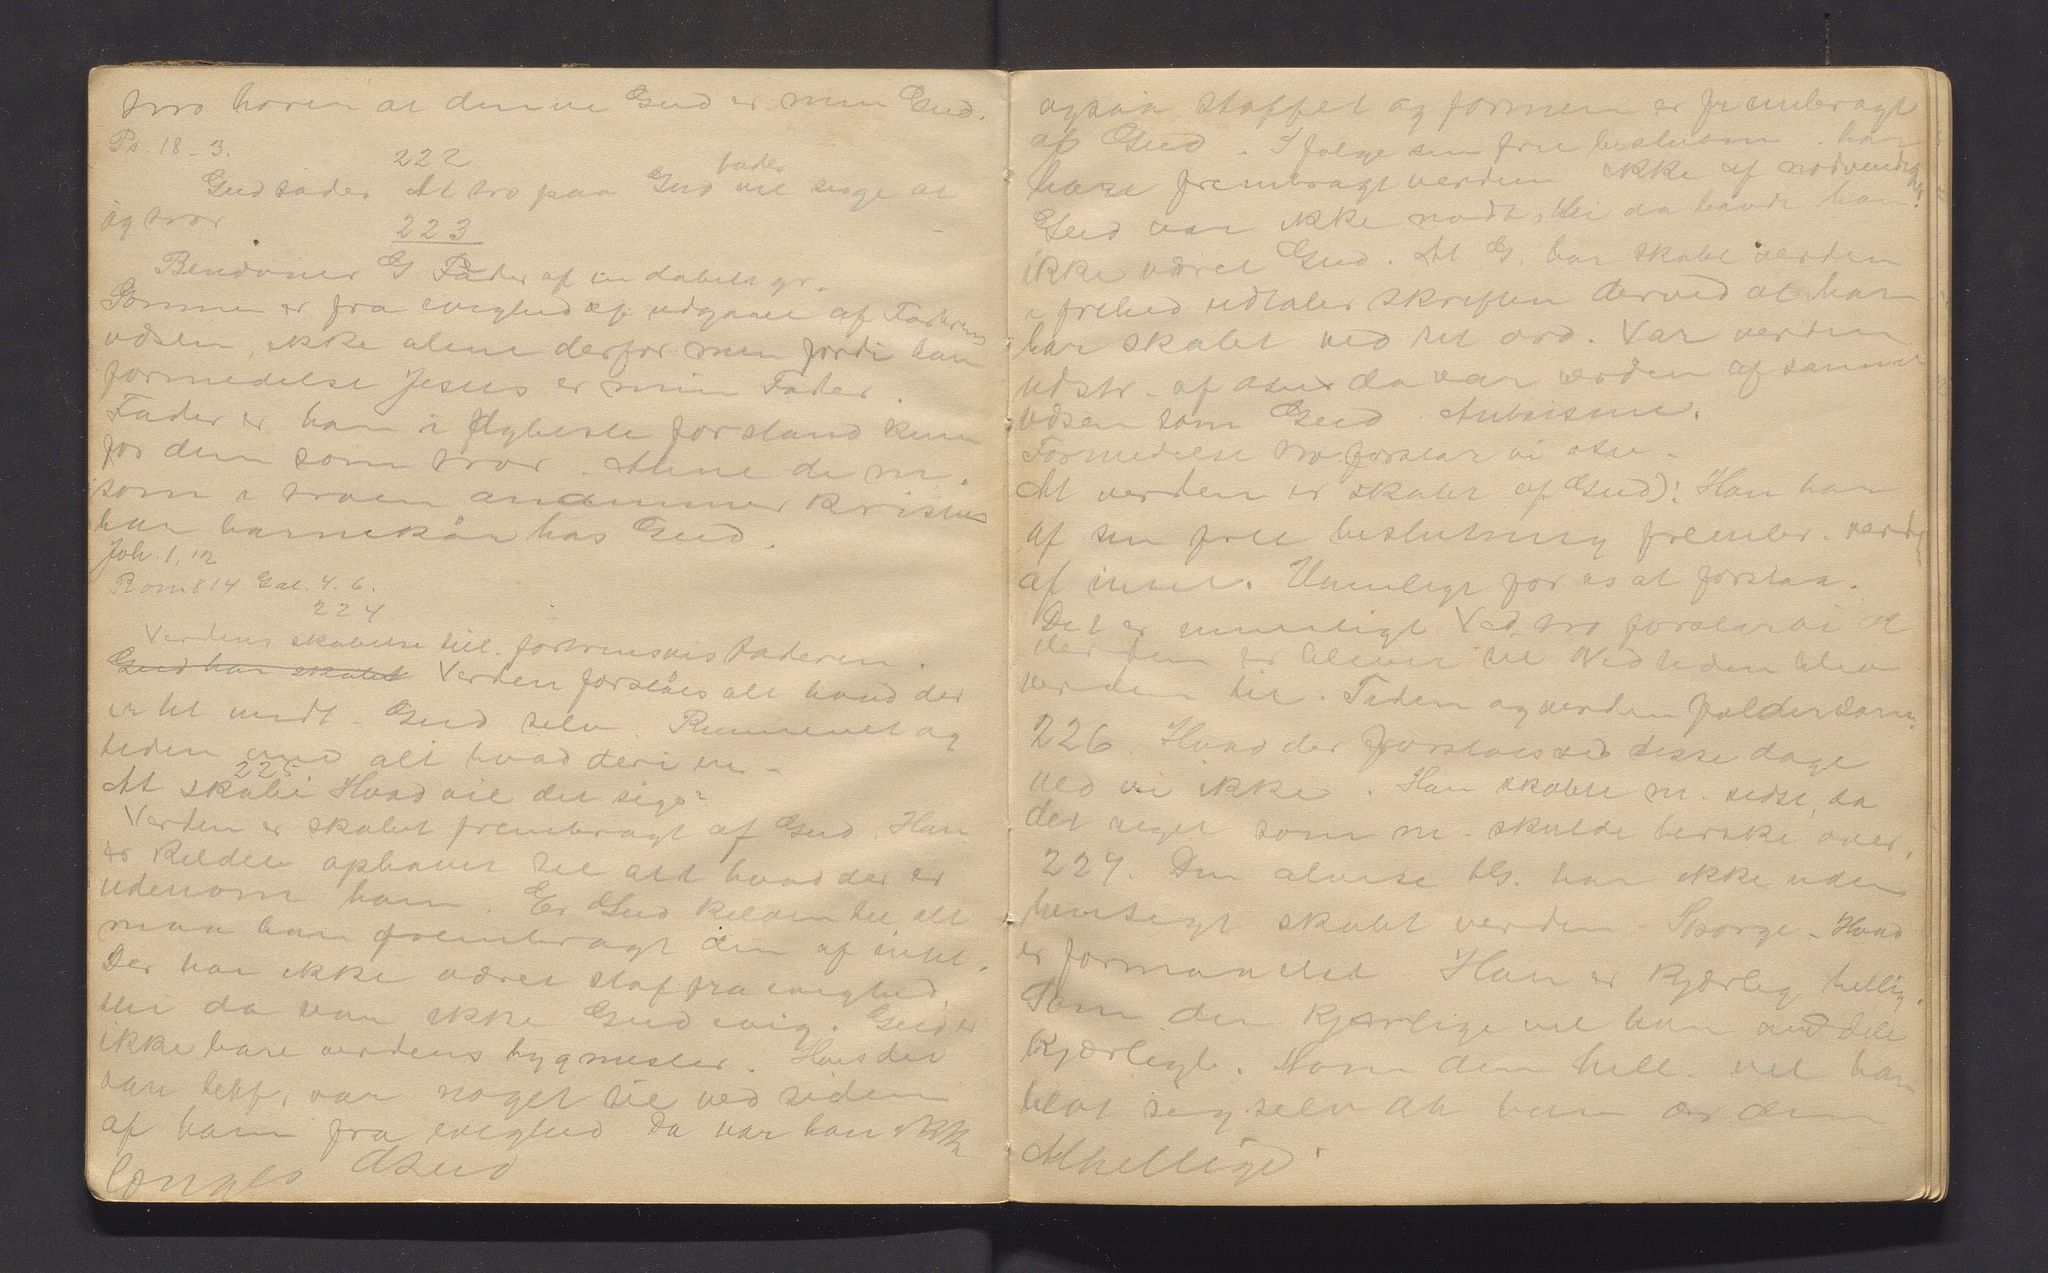 tro hører at denne Gud er min Gud.
Ps. 18-3.
222
Gud fader At tro paa Gud fader vil sige at
jeg tror
223
Benævner G Fader af en dobelt gr.
Sønnen er fra evighed af udgaaet af Faderens
væsen, ikke alene derfor men fordi han
formedelst Jesus er min Fader.
Fader er han i dybeste forstand kun
for dem som tror. Alene de m.
som i troen anammer Kristus
har barnekår hos Gud.
Joh. 1,12
Rom 8 14 Gal. 4. 6.
224
Verdens skabelse til. fortrinsvis Faderen.
Gud har skabt Verden forstås alt hvad der
er til undt. Gud selv. Rummet og
tiden med alt hvad deri er.
225
At skabe Hvad vil det sige?
Verden er skabt frembragt af Gud. Han
er kilden ophavet til alt hvad der er
udenom ham. Er Gud kilden til alt
maa han frembragt den af intet.
Der har ikke været stof fra evighed,
thi da var ikke Gud evig. Gud er
ikke bare verdens bygmester. Hvis det
var var noget til ved siden
af ham fra evighed da var han ikke
længer Gud
ogsaa stoffet og formen er frembragt
af Gud. Ifølge sin frie beslutn. har
han frembragt verden ikke af nødvendigh.
Gud var ikke nødt, thi da havde han
ikke været Gud. At G. har skabt verden
i frihed udtaler skriften derved at han
har skabt ved sit ord. Var verden
udstr. af da var verden af samme
væsen som Gud
Formedelst tro forstar vi
At verden er skabt af Gud): Han har
af sin frie beslutning frembr. verden
af intet. Umuligt for os at forstaa.
Det er umuligt. Ved tro forstar vi at
verden er bleven til Ved tiden blev
verden til. Tiden og verden falder sam.
226. Hvad der forstaaes ved disse dage
ved vi ikke. Han skabte m. sidst, da
det riget som m. skulde herske over.
227. Den alvise G. har ikke uden
hensigt skabt verden. Spørge. Hvad
er formaalet Han er kjærlig hellig.
Som den kjærlige vil han meddele
kjærligh. Som den hell. vil han
at han er den
Alhellige.